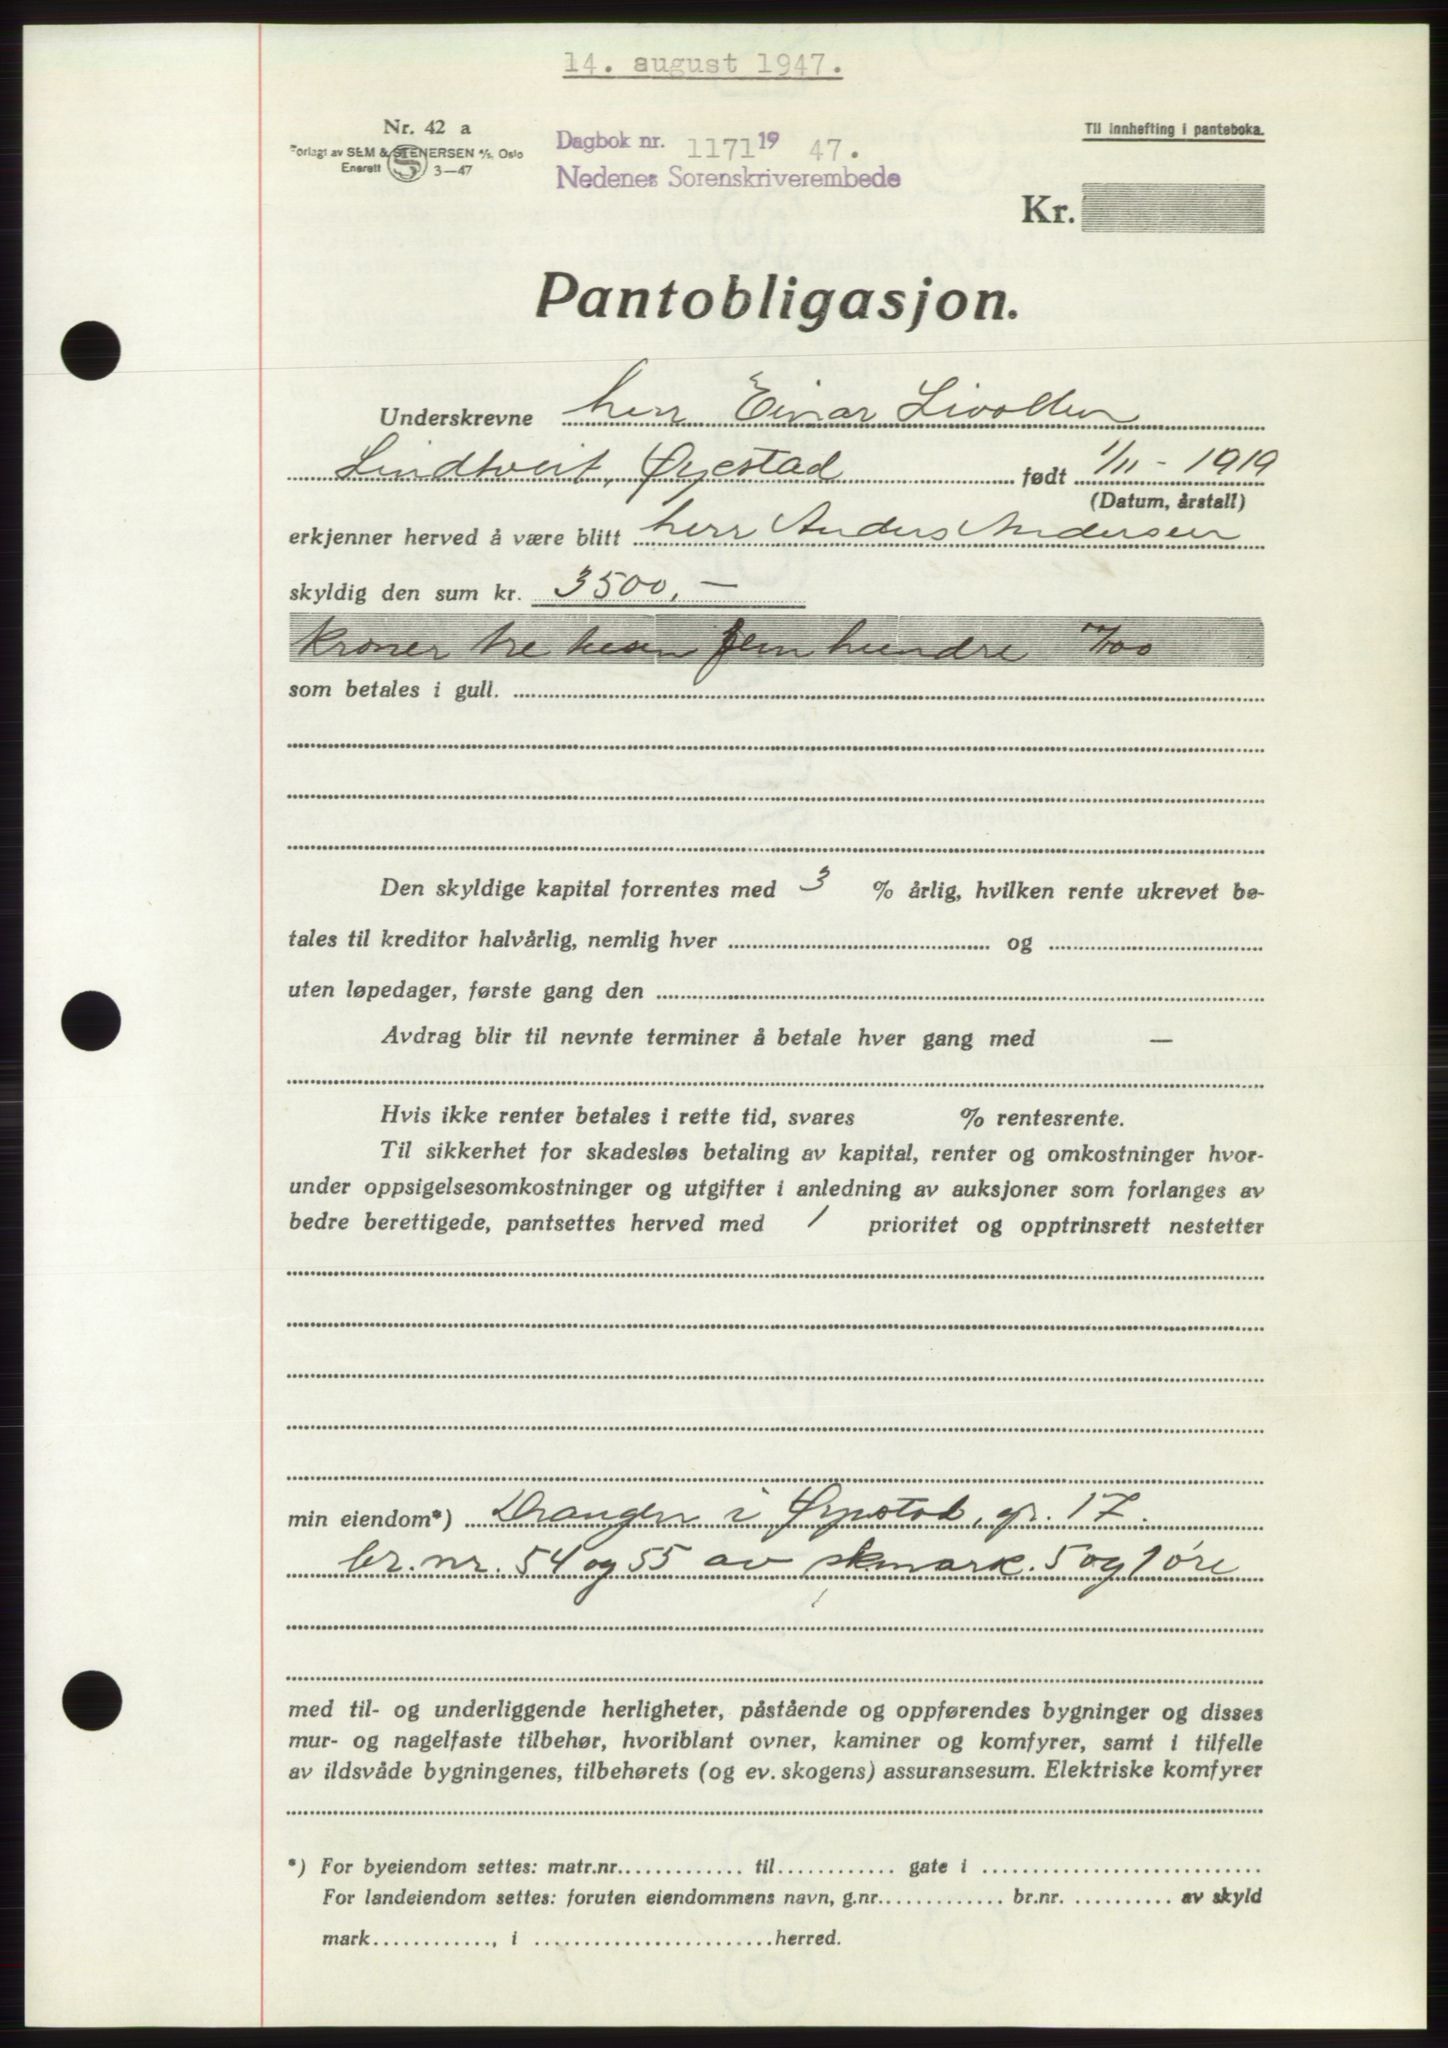 14. august 1947.
Nr. 42 a
Forlagt av SEM & STENERSEN A/S, Oslo
Enerett S 3—47
Dagbok nr. 1171 19 47.
Nedenes Sorenskriverembede
Til innhefting i panteboka.
Kr.
Pantobligasjon.
Underskrevne herr Einar Livollen
Lindtveit, Øyestad født 1/11 - 1919
(Datum, årstall)
erkjenner herved å være blitt herr Anders Andersen
skyldig den sum kr. 3500,—
kroner tre tusen fem hundre 7/00
som betales i gull.
Den skyldige kapital forrentes med 3 % årlig, hvilken rente ukrevet be-
tales til kreditor halvårlig, nemlig hver og
uten løpedager, første gang den
Avdrag blir til nevnte terminer å betale hver gang med —
Hvis ikke renter betales i rette tid, svares % rentesrente.
Til sikkerhet for skadesløs betaling av kapital, renter og omkostninger hvor-
under oppsigelsesomkostninger og utgifter i anledning av auksjoner som forlanges av
bedre berettigede, pantsettes herved med 1 prioritet og opptrinsrett nestetter
min eiendom*) i Øyestad, gr. 17.
br. nr. 54 og 55 av skmark. 5 og 1 øre
med til- og underliggende herligheter, påstående og oppførendes bygninger og disses
mur- og nagelfaste tilbehør, hvoriblant ovner, kaminer og komfyrer, samt i tilfelle
av ildsvåde bygningenes, tilbehørets (og ev. skogens) assuransesum. Elektriske komfyrer
*) For byeiendom settes: matr.nr. til gate i
For landeiendom settes: foruten eiendommens navn, g.nr. br.nr. av skyld
mark , i herred.